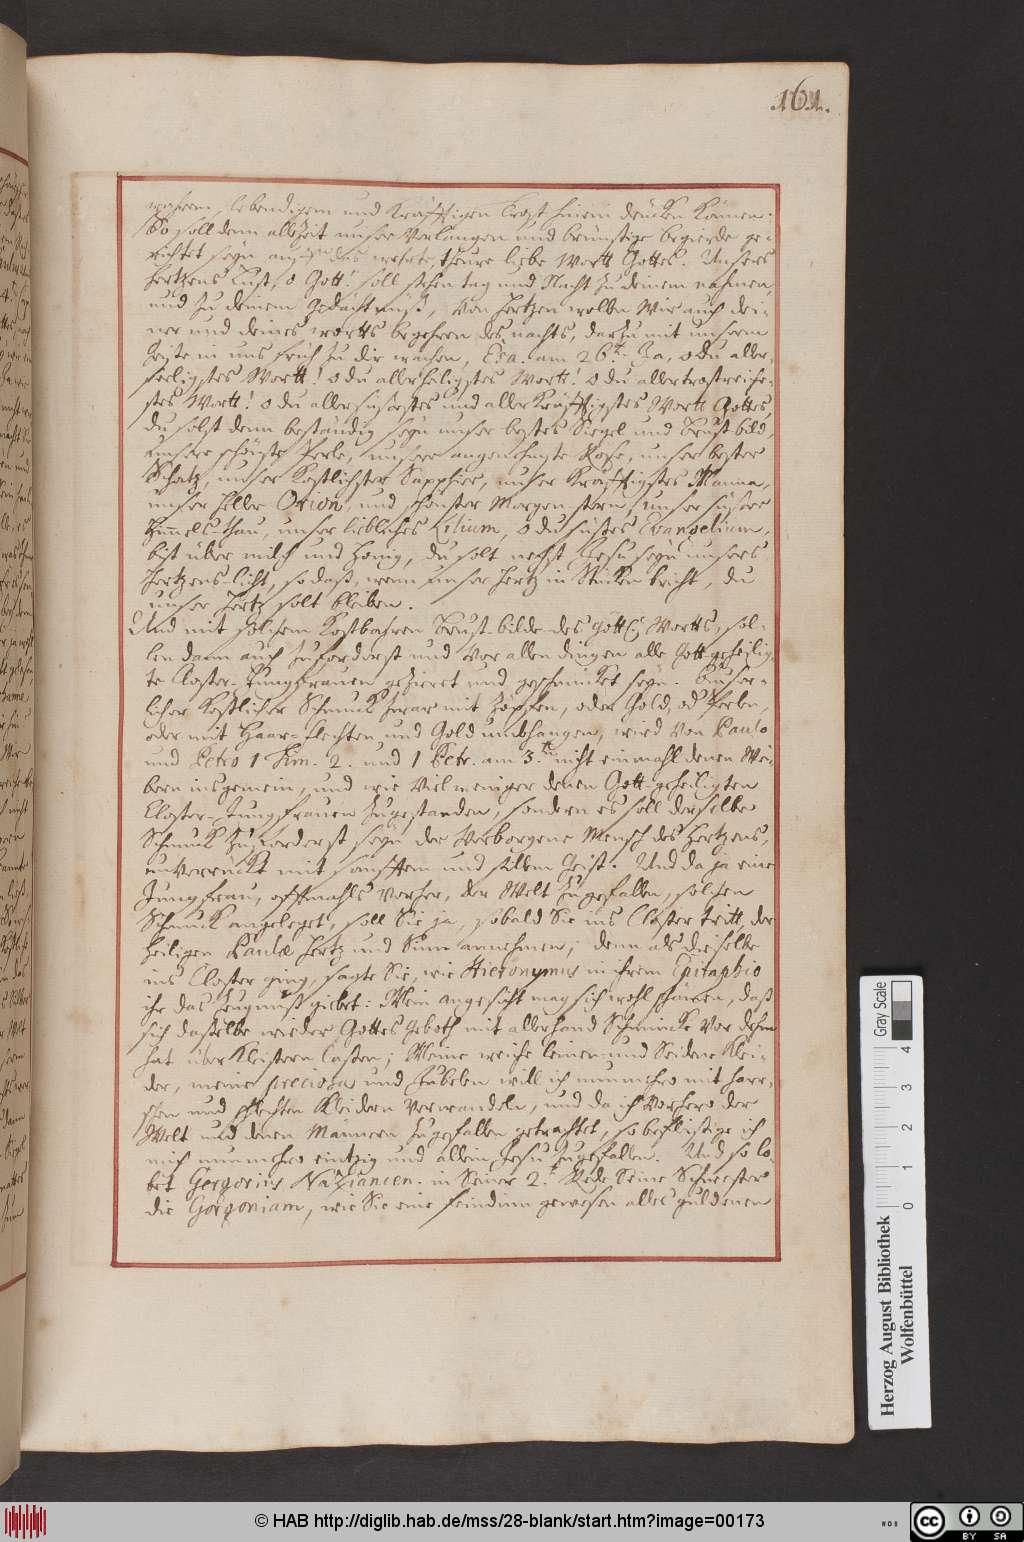 161.
wahrem, lebendigem und Kräfftigen Trost hinein drucken können.
So soll denn allezeit unser Verlangen und brünstige begierde ge-
richtet seyn auf das wehrte, theure liebe Wortt Gottes. Unsers
Hertzens Lust, o Gott! soll stehen tag und Nacht zu deinem nahmen
und zu deinem gedächtnüß, Von Hertzen wollen Wir auch dei-
ner und deines wortts begehren des nachts, darzu mit unserm
Geiste in uns früh zu dir wachen, Esa. am 26. Ja, o du aller-
seeligstes Wortt! o du allerheiligstes Wortt! o du allertrostreiche-
stes Wortt! o du allersüssestes und allerkräfftigstes Wortt Gottes,
du solst denn beständig seyn unser bestes Siegel und brust bild,
unsere schönste Perle, unsere angenehmste Rose, unser bester
Schatz, unser Köstlichster Sapphier, unser Kräfftigstes Manna,
unser heller Orion, und schönster Morgen-stern, unser süsser
Himmels-thau, unser liebliches Lilium, o du süsses Evangelium,
bist über milch und Honig, du solt nechst Jesu seyn unsers
Hertzens-licht, so daß, wenn unser Hertz in Stücken bricht, du
unser Hertz solt bleiben.
Und mit solchem Kostbahren brust-bilde des göttl. Wortts, sol-
len dann auch zuforderst und Vor allen dingen alle Gott geheilig-
te Closter-Jungfrauen gezieret und geschmücket seyn. Eusser-
licher Köstlicher Schmuck zwar mit Zöpfen, oder Gold, od. Perlen,
oder mit Haar-flechten und Gold umbhangen, wird Von Paulo
und Petro 1 Tim. 2. und 1 Petr. am 3. nicht einmahl denen Wei-
bern insgemein, und wie Viel weniger denen Gott-geheiligten
Closter-Jungfrauen zugestanden, sondern es soll derselbe
Schmuck zuforderst seyn der Verborgene Mensch des Hertzens,
unverrückt mit sanfftem und stillem Geist. Und da ja eine
Jungfrau, offtmahls Vorher, der Welt zugefallen, solchen
Schmuck angeleget, soll Sie ja, sobald Sie ins Closter tritt, der
heiligen Paulæ Hertz und Sinn annehmen; denn als dieselbe
ins Closter ging, sagte Sie, wie Hieronymus in ihrem Epitaphio
ihr das Zeugnüß giebet: Mein angesicht mag sich wohl schämen, daß
sich dasselbe wieder Gottes geboth mit allerhand Schmincke Vor dehm
hat überkleistern lassen; Meine weiche leinen und Seidene Klei-
der, meine preciosa und Jubelen will ich nunmehro mit harr-
sten und schlechten Kleidern verwandeln, und da ich Vorhero der
Welt und denen Männern zugefallen getrachtet, so befleissige ich
mich nunmehro eintzig und allein Jesu zugefallen. Und so lo-
bet Gergorius Nazianzen. in Seiner 2. Rede Seine Schwester
die Gorgoniam, wie Sie eine feindinn gewesen alles güldenen
Herzog August Bibliothek
Wolfenbüttel
Gray Scale
0 1 2 3 4
© HAB http://diglib.hab.de/mss/28-blank/start.htm?image=00173
WDB
cc BY SA